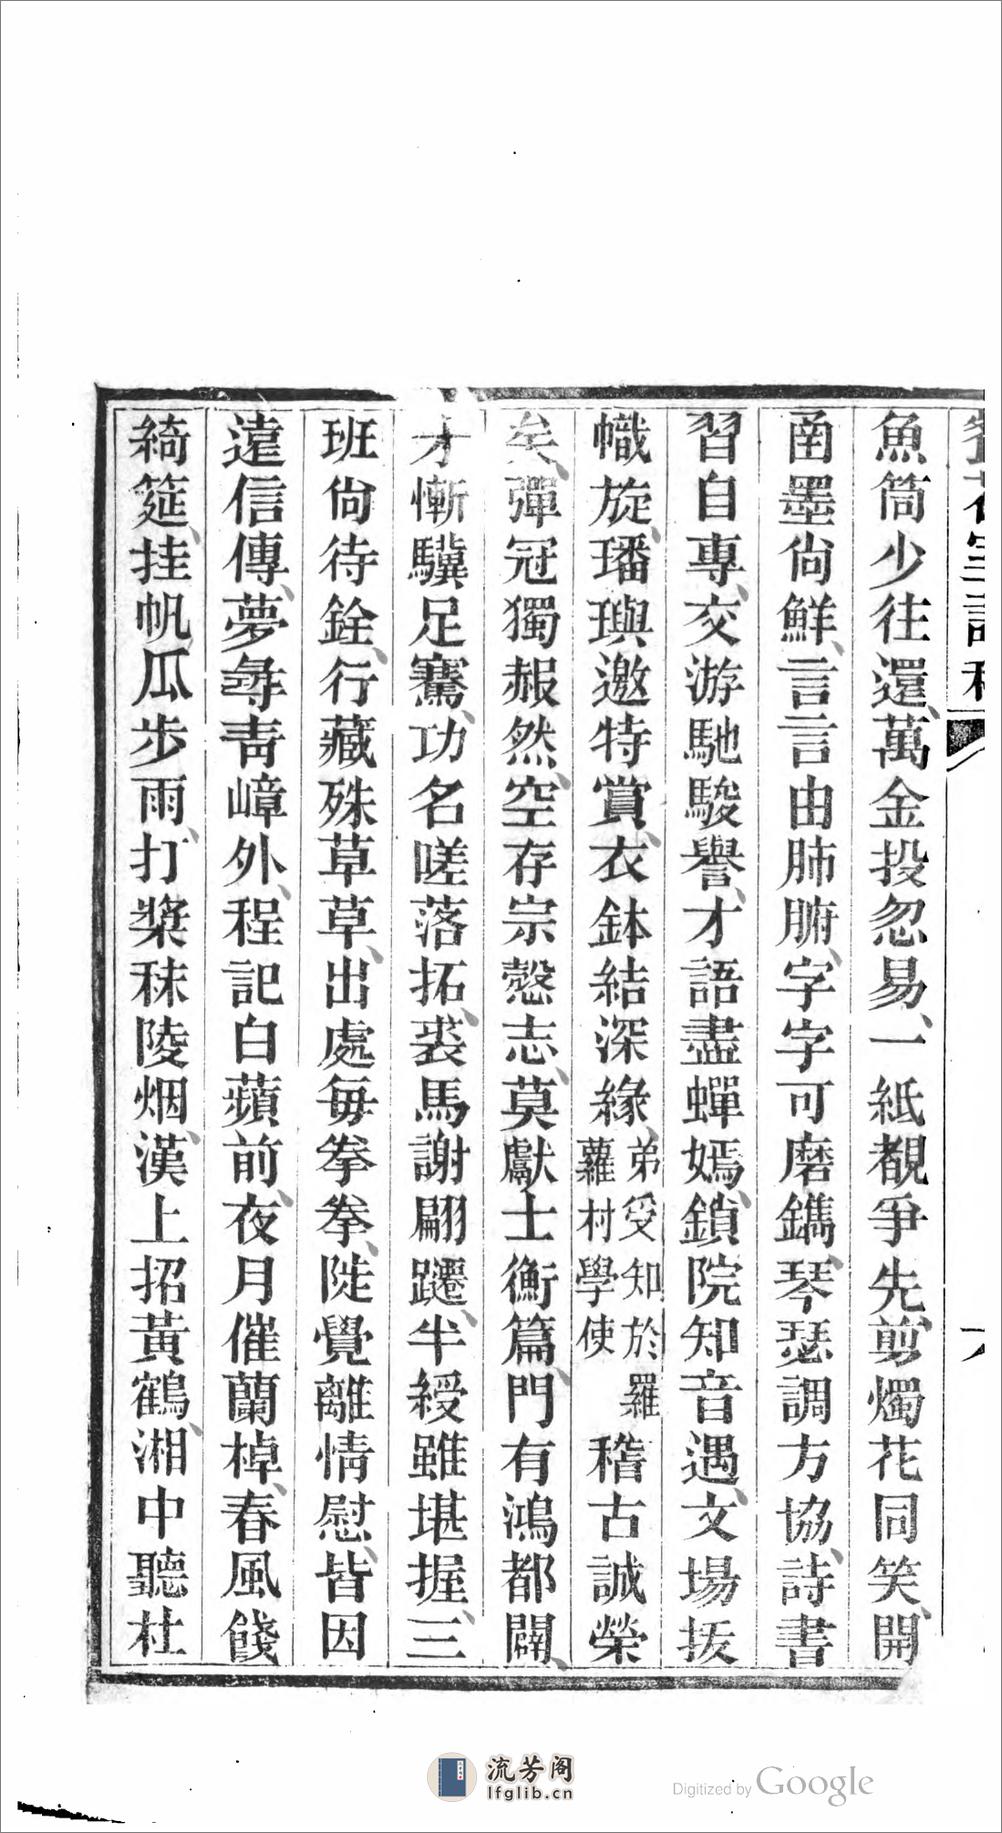 魚筒少往還、萬金投忽易、一紙覩爭先、剪燭花同笑、開
函墨尙鮮、言言由肺腑、字字可磨鐫、琴瑟調方協、詩書
習自專、交游馳駿譽、才語盡蟬嫣、鎖院知音遇、文場拔
幟旋、璠璵邀特賞、衣鉢結深緣、弟受知於羅蘿村學使 稽古誠榮
矣、彈冠獨赧然、空存宗愨志、莫獻士衡篇、門有鴻都闢、
才慚驥足騫、功名嗟落拓、裘馬謝翩躚、半綬雖堪握、三
班尙待銓、行藏殊草草、出處每拳拳、陡覺離情慰、皆因
遠信傳、夢尋靑嶂外、程記白蘋前、夜月催蘭棹、春風餞
綺筵、挂帆瓜步雨、打槳秣陵烟、漢上招黃鶴、湘中聽杜
流芳阁
lfglib.cn
Digitized by Google